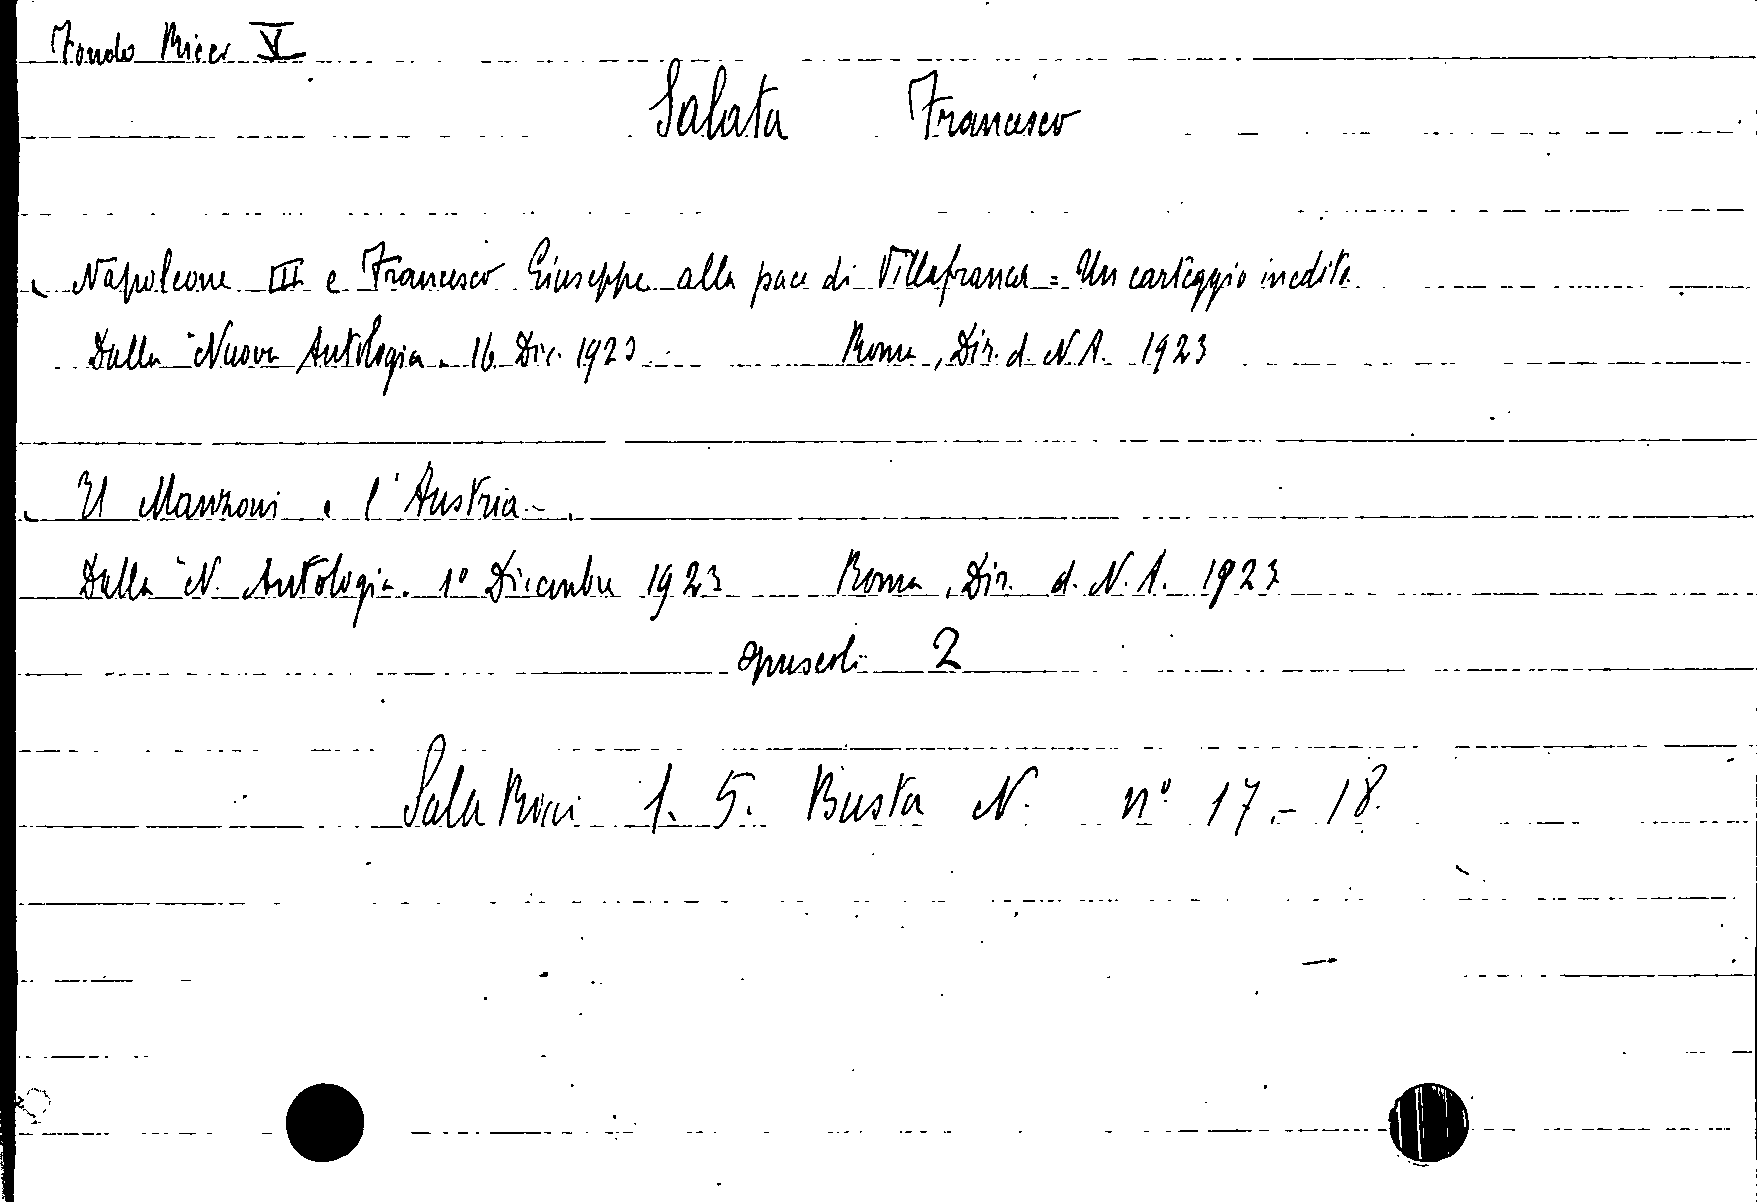 Fondo Ricci V
Salata Francesco
Napoleone III e Francesco Giuseppe alla pace di Villafranca = Un carteggio inedito
Dalla "Nuova Antologia. 16 Dic. 1923 Roma, Dir. d. N.A. 1923
Il Manzoni e l'Austria -.
Dalla "N. Antologia. 1º Dicembre 1923 Roma, Dir. d. N. A. 1923
opuscoli 2
Sala Ricci 1. 5. Busta N. nº 17 - 18.